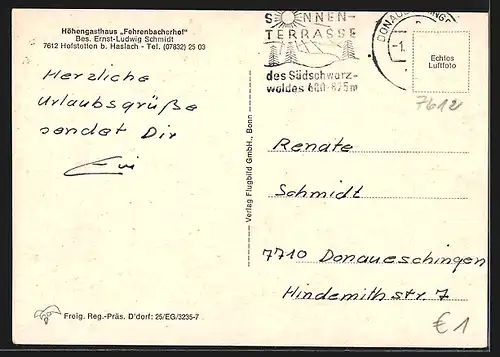 Höhengasthaus „Fehrenbacherhof"
Bes. Ernst-Ludwig Schmidt
7612 Hofstetten b. Haslach - Tel. (07832) 25 03
Herzliche
Urlaubsgrüße
sendet Dir
Evi
Freig. Reg.-Präs. D'dorf: 25/EG/3235-7
Verlag Flugbild GmbH., Bonn
SONNEN-
TERRASSE
des Südschwarz-
waldes 600-875m
-1.
Echtes
Luftfoto
7612
Renate
Schmidt
7710 Donaueschingen
Hindemithstr. 7
€ 1